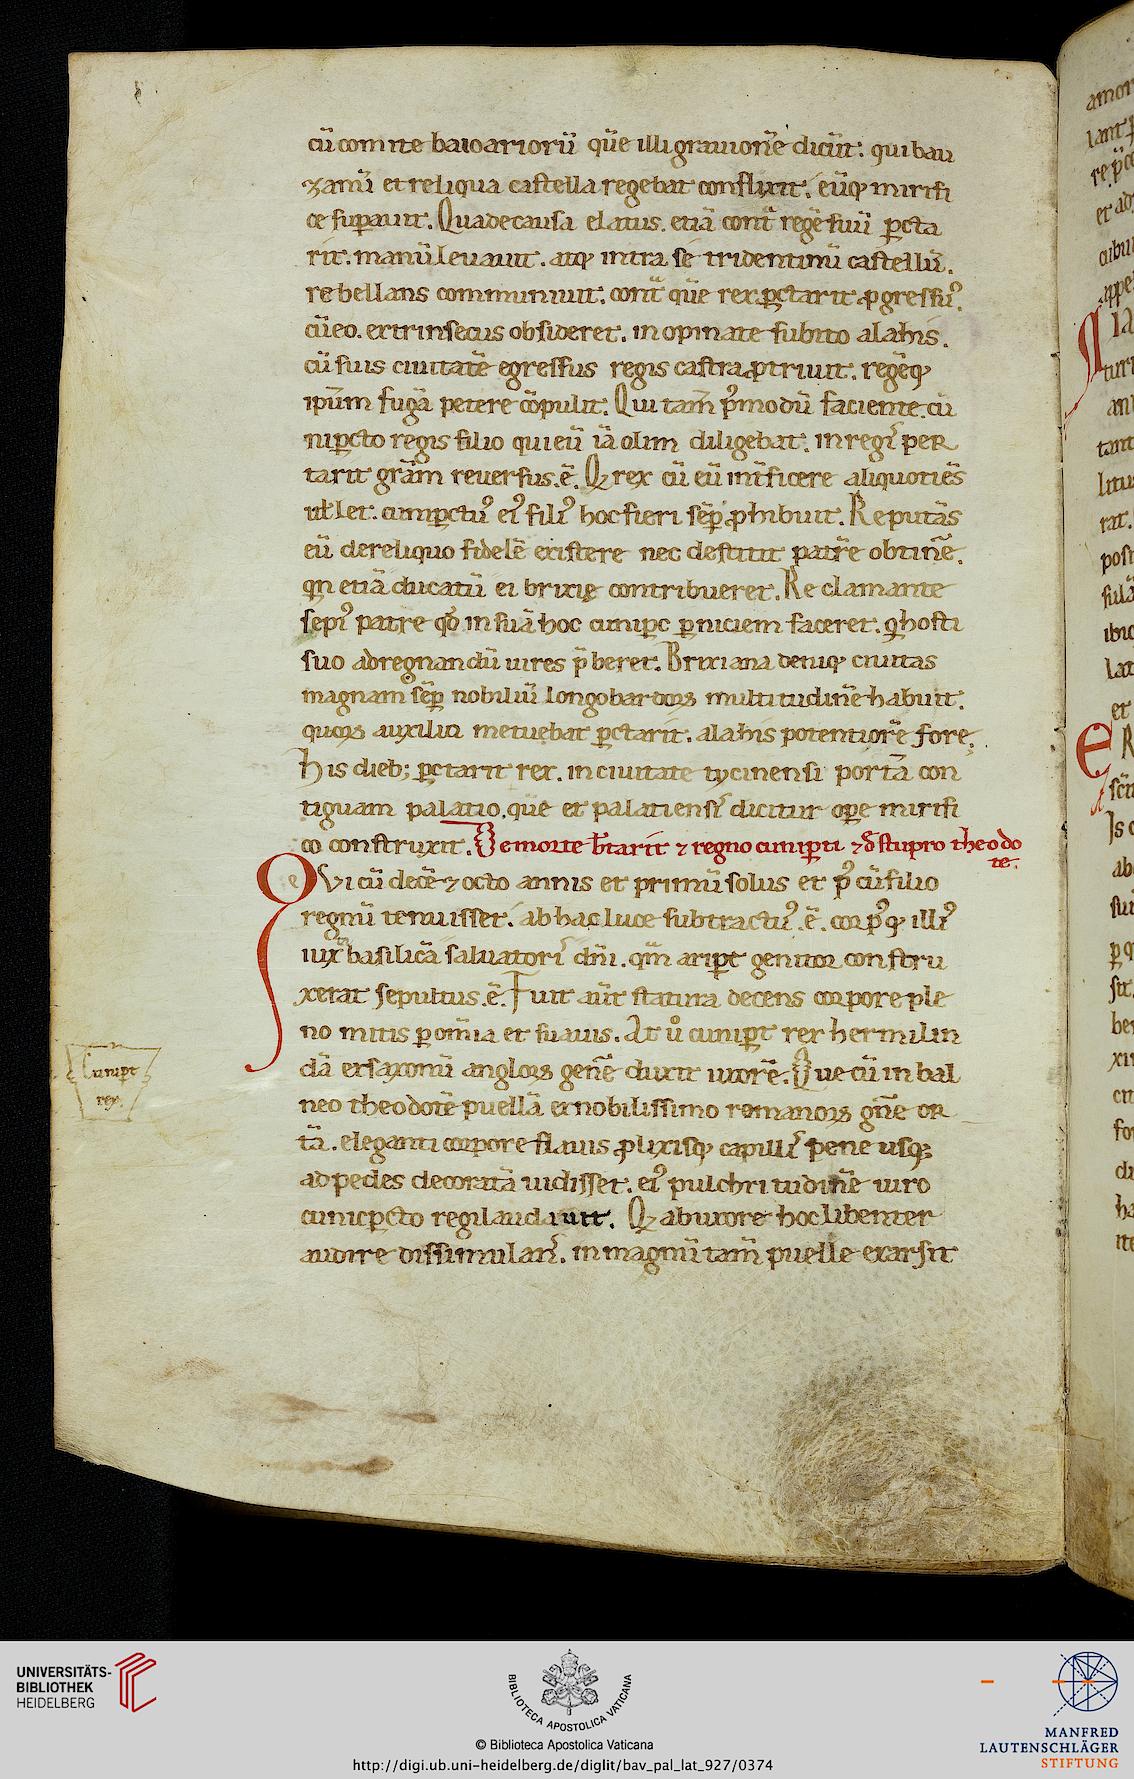 cū comite baioariorū quē illi grauionē dicūt. qui bau
zanū et reliqua castella regebat conflixit. eūq; mirifi
ce supauit. Qua de causa elatus. etiā cont regē suū pcta
rit. manū leuauit. atq; intra se tridentinū castellū.
rebellans communiuit. cont quē rex pctarit pgressus.
cū eo. extrinsecus obsideret. inopinate subito alahis.
cū suis ciuitatē egressus regis castra ptriuit. regēq;
ipsum fugā petere cōpulit. Qui tam pmodū faciente cū
nipcto regis filio qui eū iā olim diligebat. in regis per
tarit gram reuersus. ē. Qd rex cū eū intficere aliquotiēs
uellet. cunipctus eius filius hoc fieri sēp phibuit. Reputās
eū de reliquo fidelē existere nec destitit patrē obtinē.
qn etiā ducatū ei brixię contribueret. Reclamante
sepius patre qd in suā hoc cunipc pniciem faceret. q hosti
suo ad regnandū uires pberet. Brixiana deniq; ciuitas
magnam sēp nobiliū longobardorum multitudinē habuit.
quorum auxilio metuebat pctarit. alahis potentiorē fore.
His dieb; pctarit rex. in ciuitate tycinensi portā con
tiguam palatio. quē et palatiensis dicitur ope mirifi
co construxit. De morte btarit & regno cunipti & d stupro theodo
te.
QVi cū decē & octo annis et primū solus et p cū filio
regnū tenuisset. ab hac luce subtractus. ē. corpusq; illius
iuxta basilicā saluatoris dni. qm aript genitor constru
xerat sepultus. ē. Fuit aut statura decens corpore ple
no mitis p omnia et suauis. At u cunipt rex hermilin
dā ex saxonū anglorum genē duxit uxorē. Que cū in bal
neo theodotē puellā ex nobilissimo romanorum gne or
tā. eleganti corpore flauis plixisq; capillis pene usq;
ad pedes decoratā uidisset. eius pulchritudinē uiro
cunicpcto regi laudauit. Qd ab uxore hoc libenter
audire dissimulans. in magnū tam puelle exarsit
Cunipt
rex.
UNIVERSITÄTS-
BIBLIOTHEK
HEIDELBERG
BIBLIOTECA APOSTOLICA VATICANA
© Biblioteca Apostolica Vaticana
http://digi.ub.uni-heidelberg.de/diglit/bav_pal_lat_927/0374
MANFRED
LAUTENSCHLÄGER
STIFTUNG